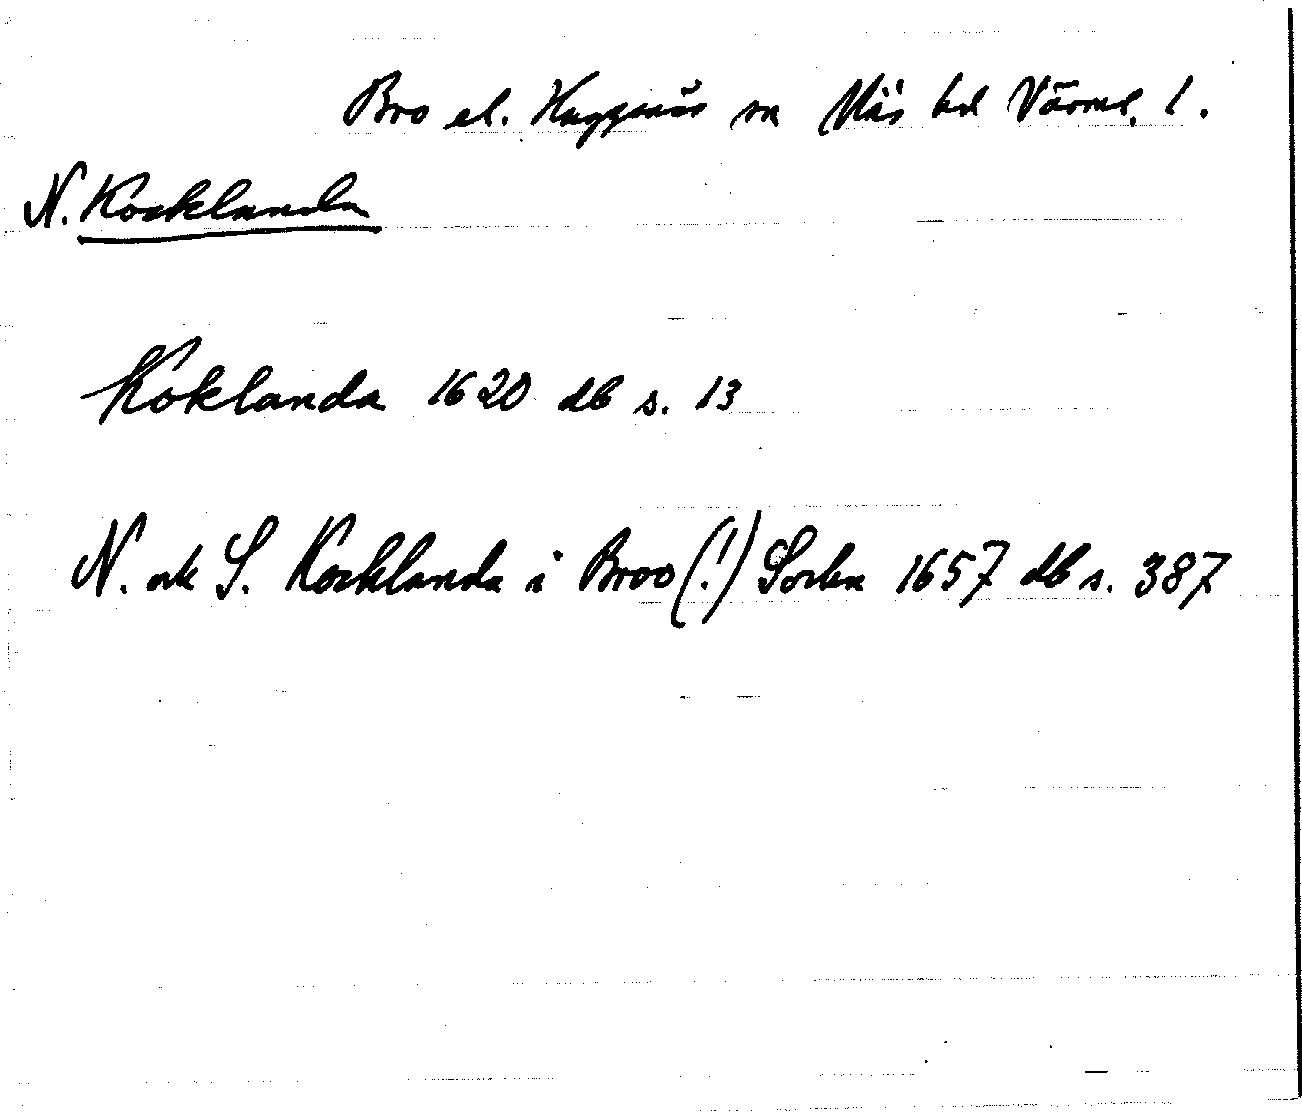 Bro el. Huggenäs sn Näs hd Värml. l.
N. Kocklanda
Koklanda 1620 db s. 13
N. ock S. Kocklanda i Broo (!) Sochn 1657 db s. 387